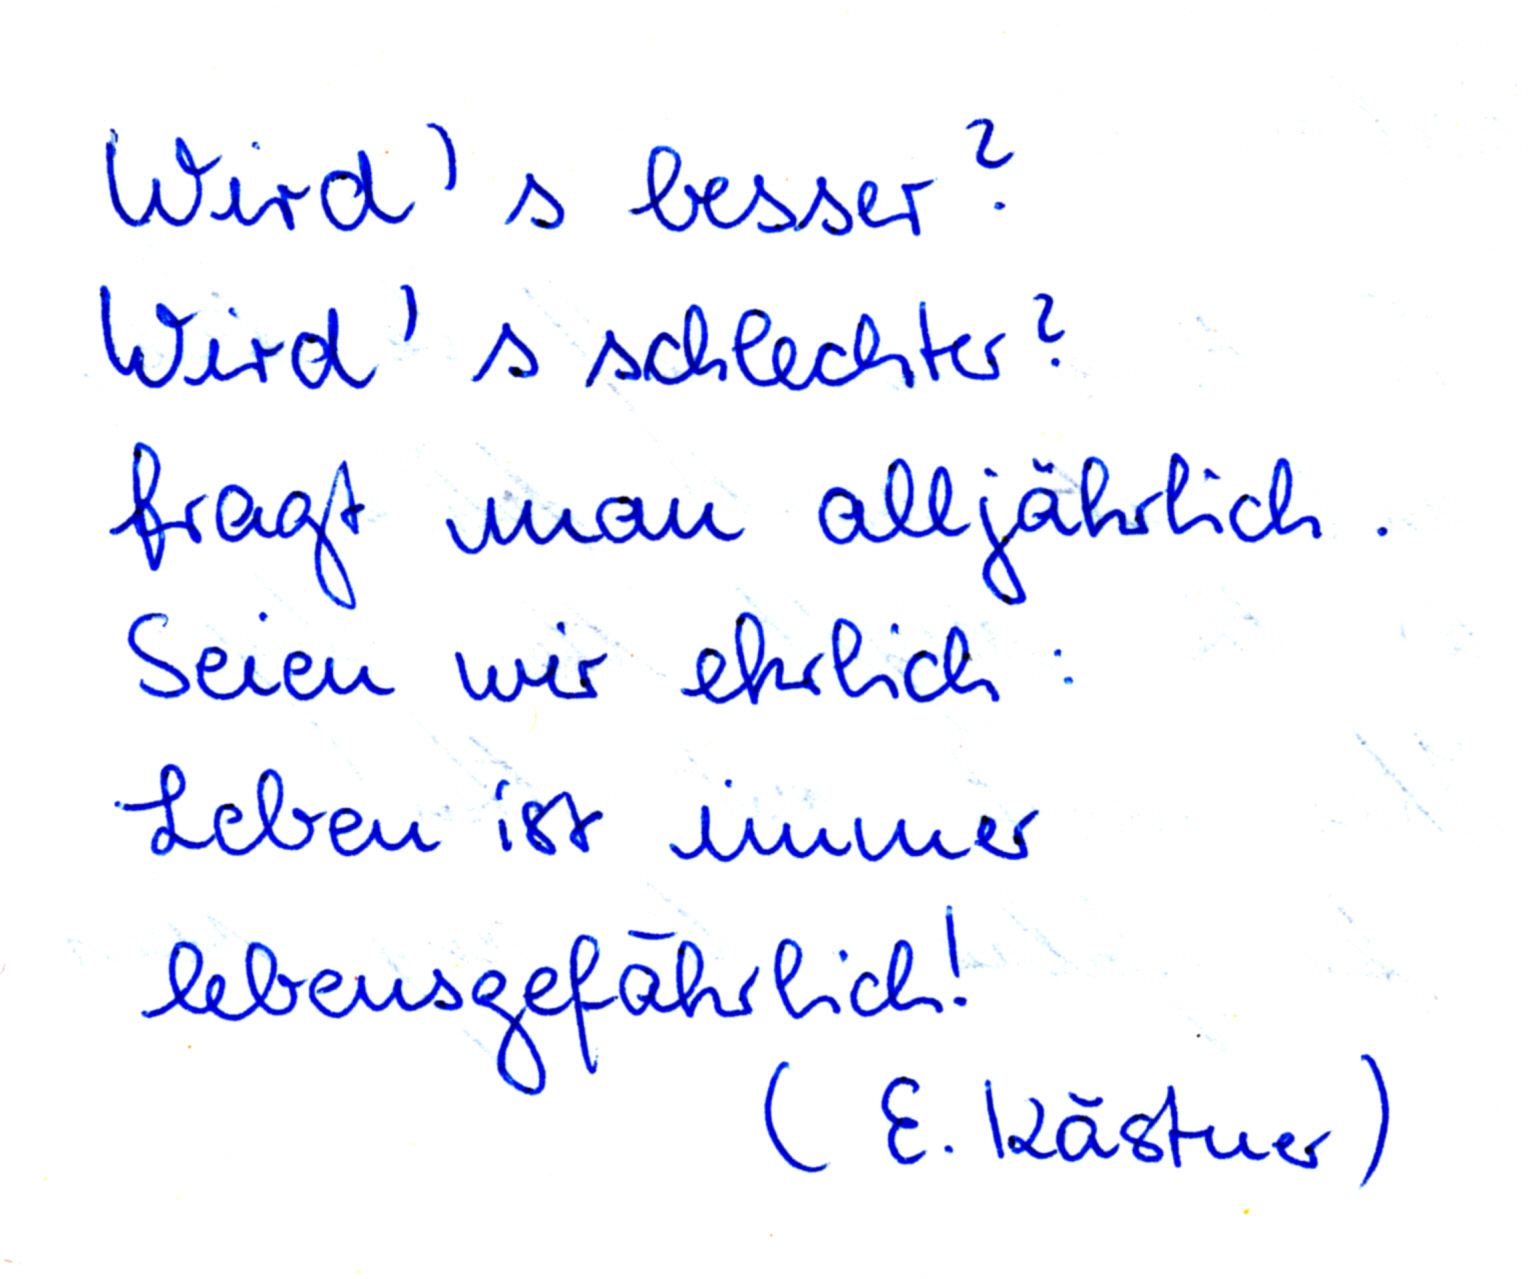 Wird's besser?
Wird's schlechter?
fragt man alljährlich.
Seien wir ehrlich:
Leben ist immer
lebensgefährlich!
(E. Kästner)